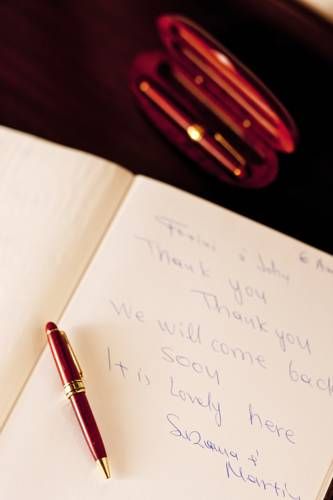 & John
Thank you
Thank you
We will come back
soon
It is lovely here
Suzana &
Martin